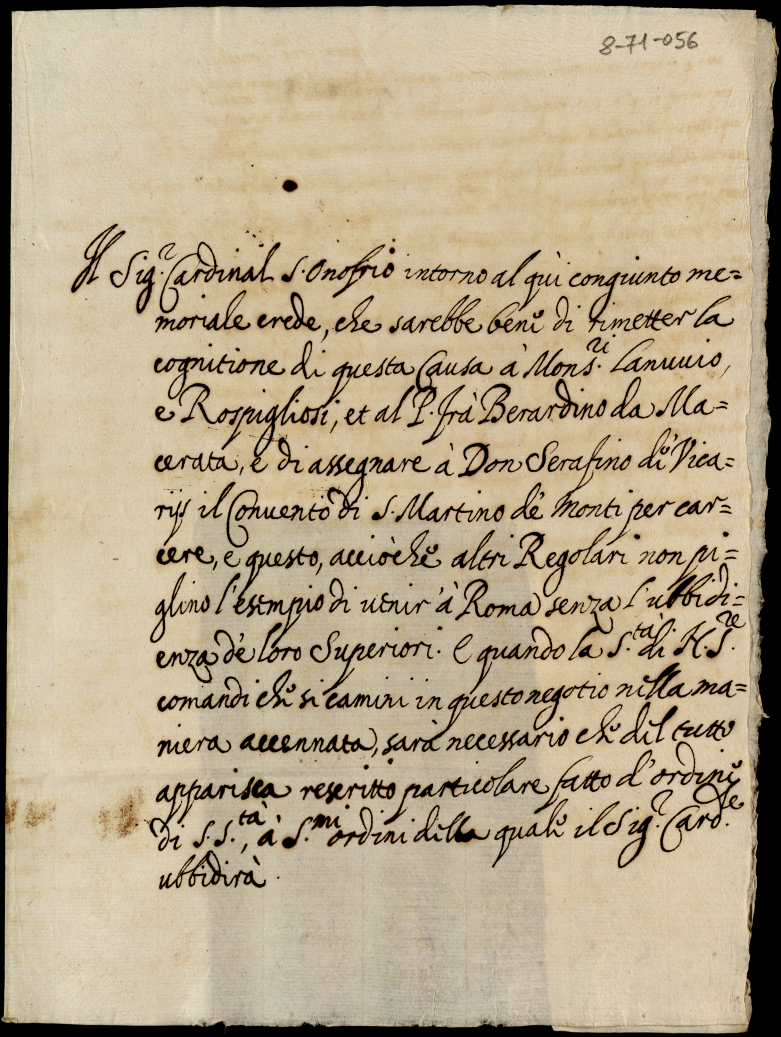 8-71-056
Il Sig.r Cardinal S. Onofrio intorno al quì congiunto me=
moriale crede, che sarebbe bene di rimetter la
cognitione di questa Causa à Mons.ri Lanuvio,
e Rospigliosi, et al P. frà Berardino da Ma=
cerata, e di assegnare à Don Serafino de' Vica=
rijs il Convento di S. Martino de' Monti per car=
cere, e questo, acciòche altri Regolari non pi=
glino l'esempio di venir' à Roma senza l'ubbidi=
enza de loro Superiori. E quando la S.tà di N. S.re
comandi che si camini in questo negotio nella ma=
niera accennata, sarà necessario che del tutto
apparisca rescritto particolare fatto d'ordine
di S. S.tà, à S.mi ordini della quale il Sig.r Card.le
ubbidirà.